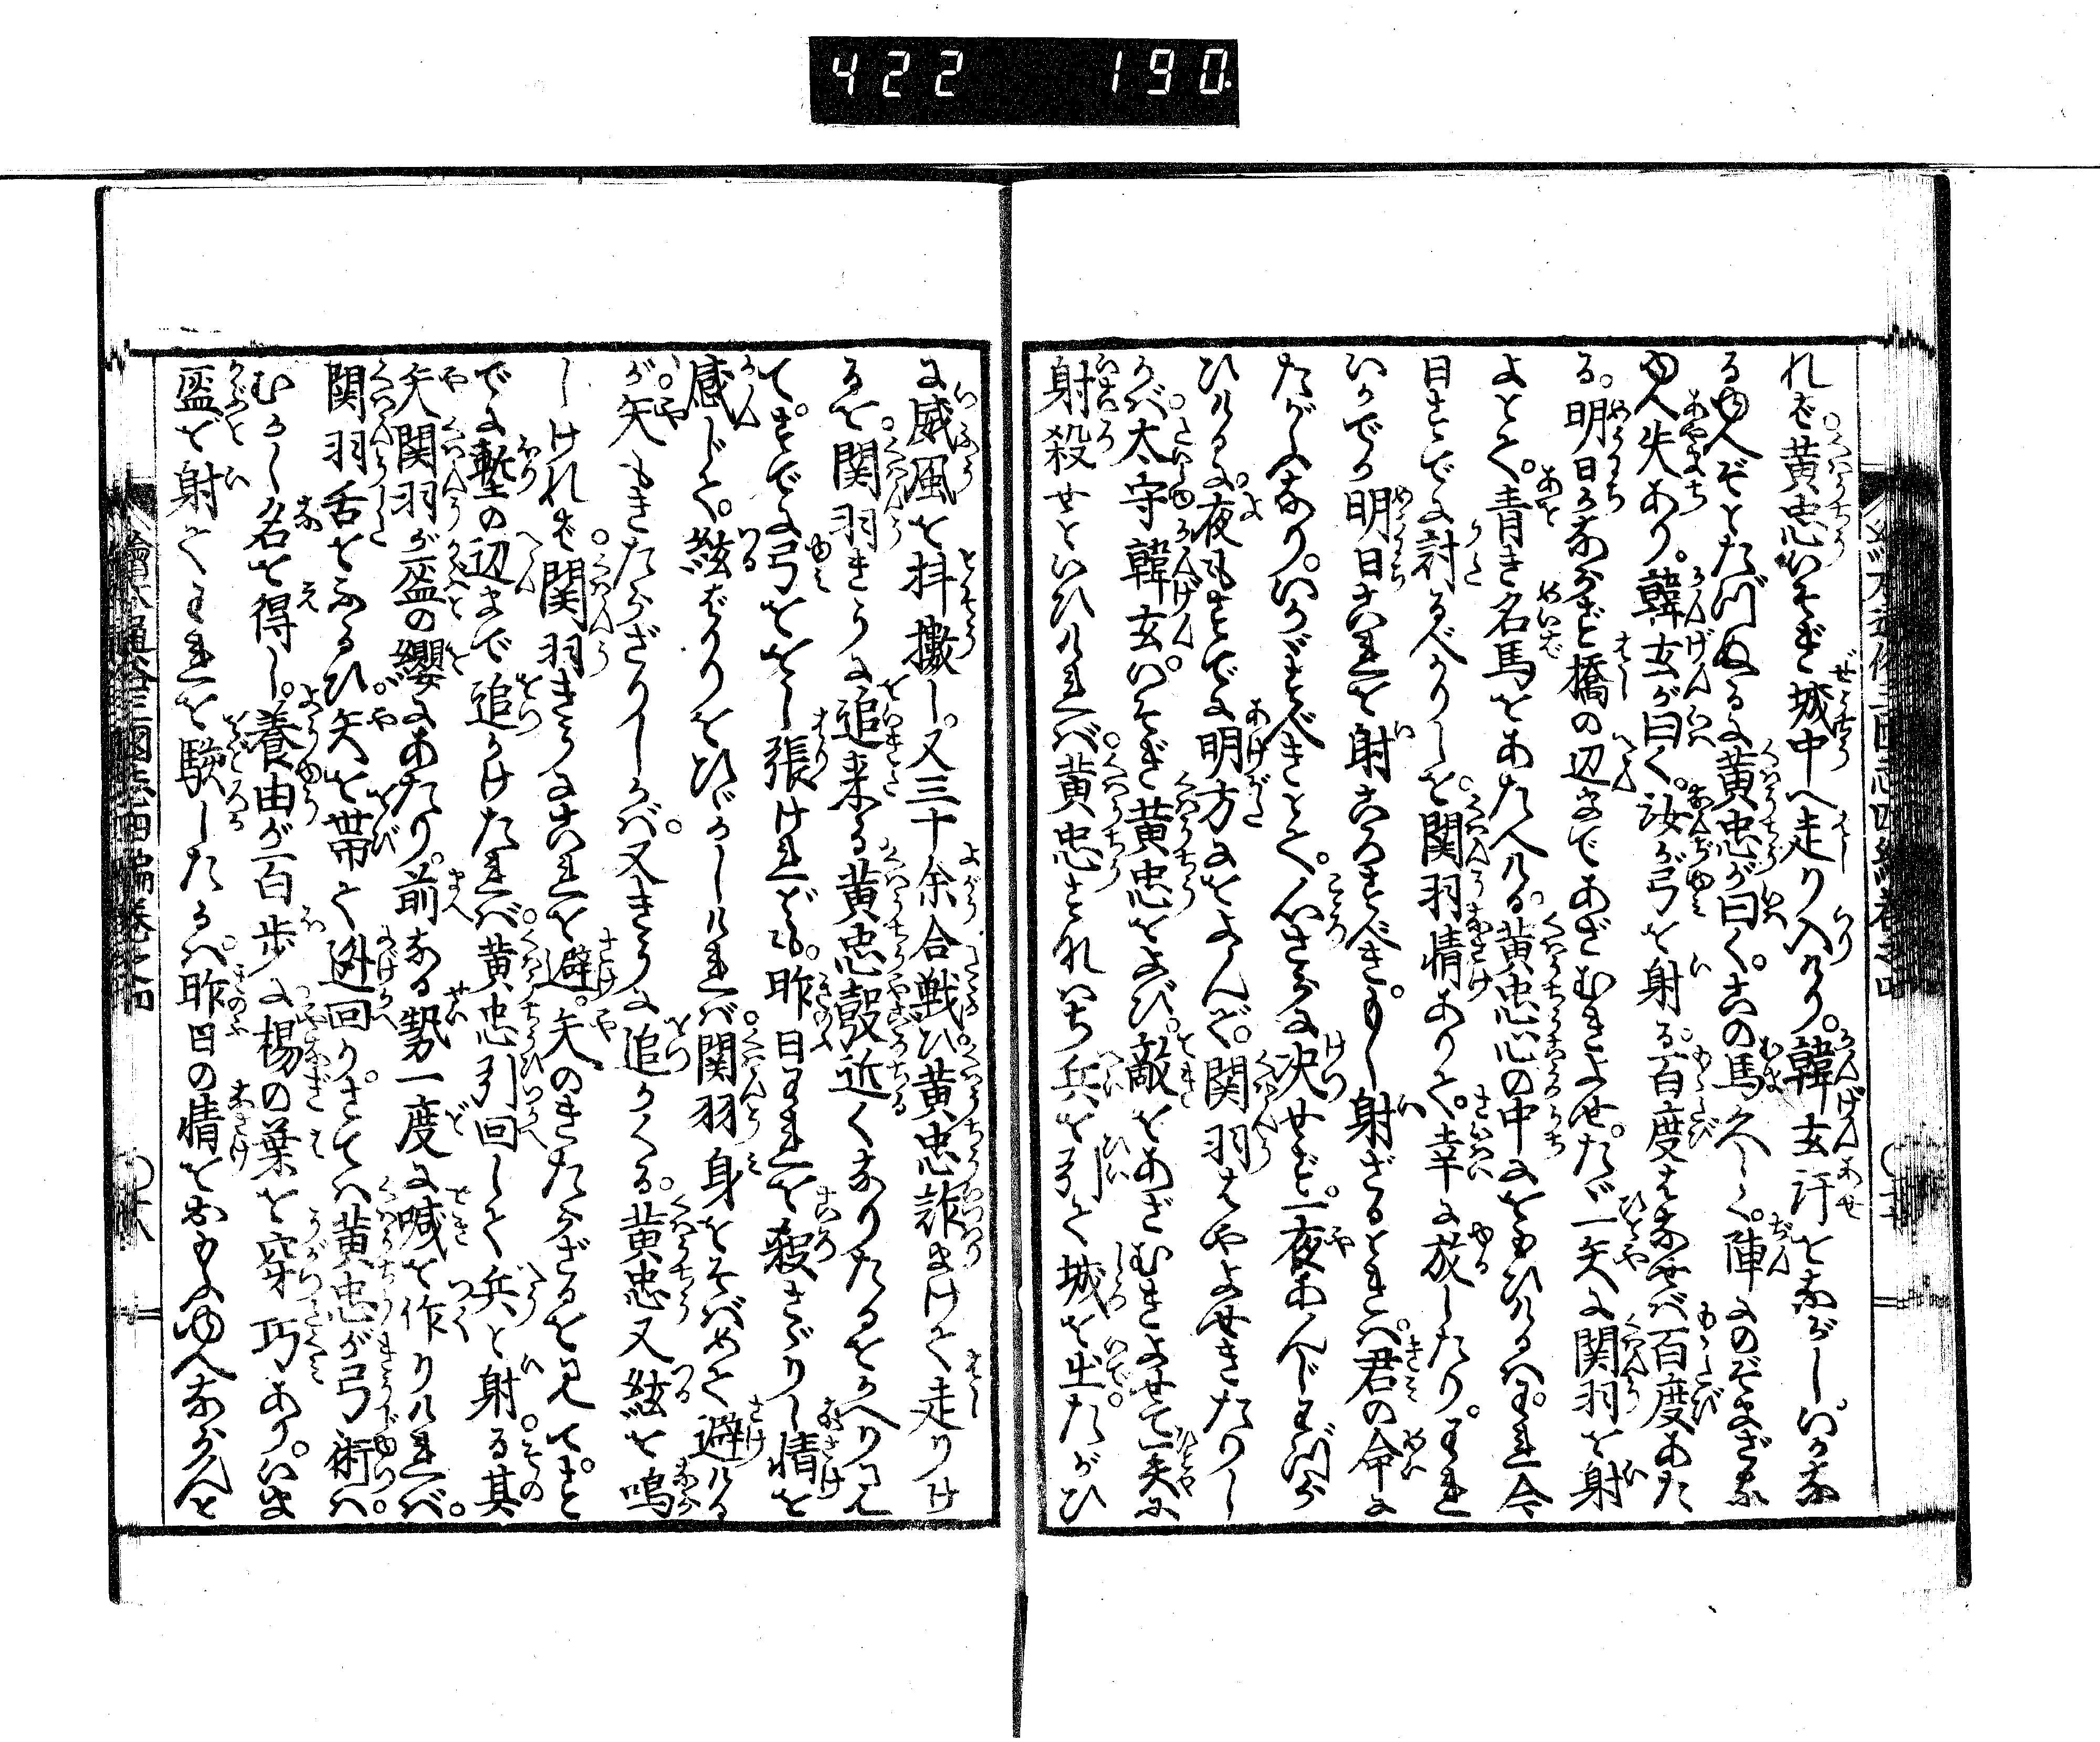 422 190
れば黄忠いそぎ城中へ走り入けり。韓玄汗をながしいかな
るゆへぞとたづぬるに黄忠が曰く。この馬久しく。陣にのぞまざる
ゆへ失あり。韓玄が曰く。汝が弓を射る。百度はなせば百度あた
る。明日かならず橋の辺まであざむきよせ。たゞ一矢に関羽を射
よとて。青き名馬をあたへける。黄忠心の中におもひけるハ。われ今
日すでに討るべかりしを。関羽情ありて。幸に放したり。われ
いかでか明日これを射ころすべき。もし射ざるときハ。君の命に
たがふなり。いかゞすべきとて。心さらに决せず。一夜あんじわづら
ひけるに。夜もすでに明方におよんで。関羽はやよせきたりし
かば太守韓玄。いそぎ黄忠をよび。敵をあざむきよせて一矢に
射殺せといひければ黄忠すなハち兵を引て城を出。たがひ
に威風を抖擻し。又三十余合戦ひ。黄忠詐まけて走りけ
るを。関羽きうに追来る。黄忠彀近くなりたるをかへり見
て。すでに弓をとし張けれども。昨日われを殺さゞりし情を
感じて。絃ばかりをひゞかしければ。関羽身をそばめて避ける
が。矢もきたらざりしかバ。又きうに追かくる。黄忠又絃を鳴
しければ。関羽きうにこれを避。矢のきたらざるを見て。す
でに塹の辺まで追かけたれバ。黄忠引回して兵と射る。其
矢関羽が盔の纓にあたり。前なる勢一度に喊を作りけれバ。
関羽舌をふるひ。矢を帯て逃回り。さてハ黄忠が弓術ハ。
むかし名を得し。養由が百歩に楊の葉を穿巧あり。いま
盔を射てわれを駭したるハ。昨日の情をおもふゆへならんと
繪本通俗三國志四編卷之四